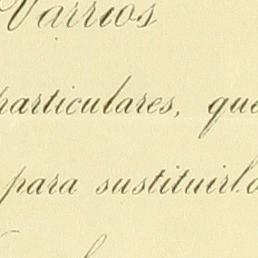 Varrios
particulares, que
para sustituirlo